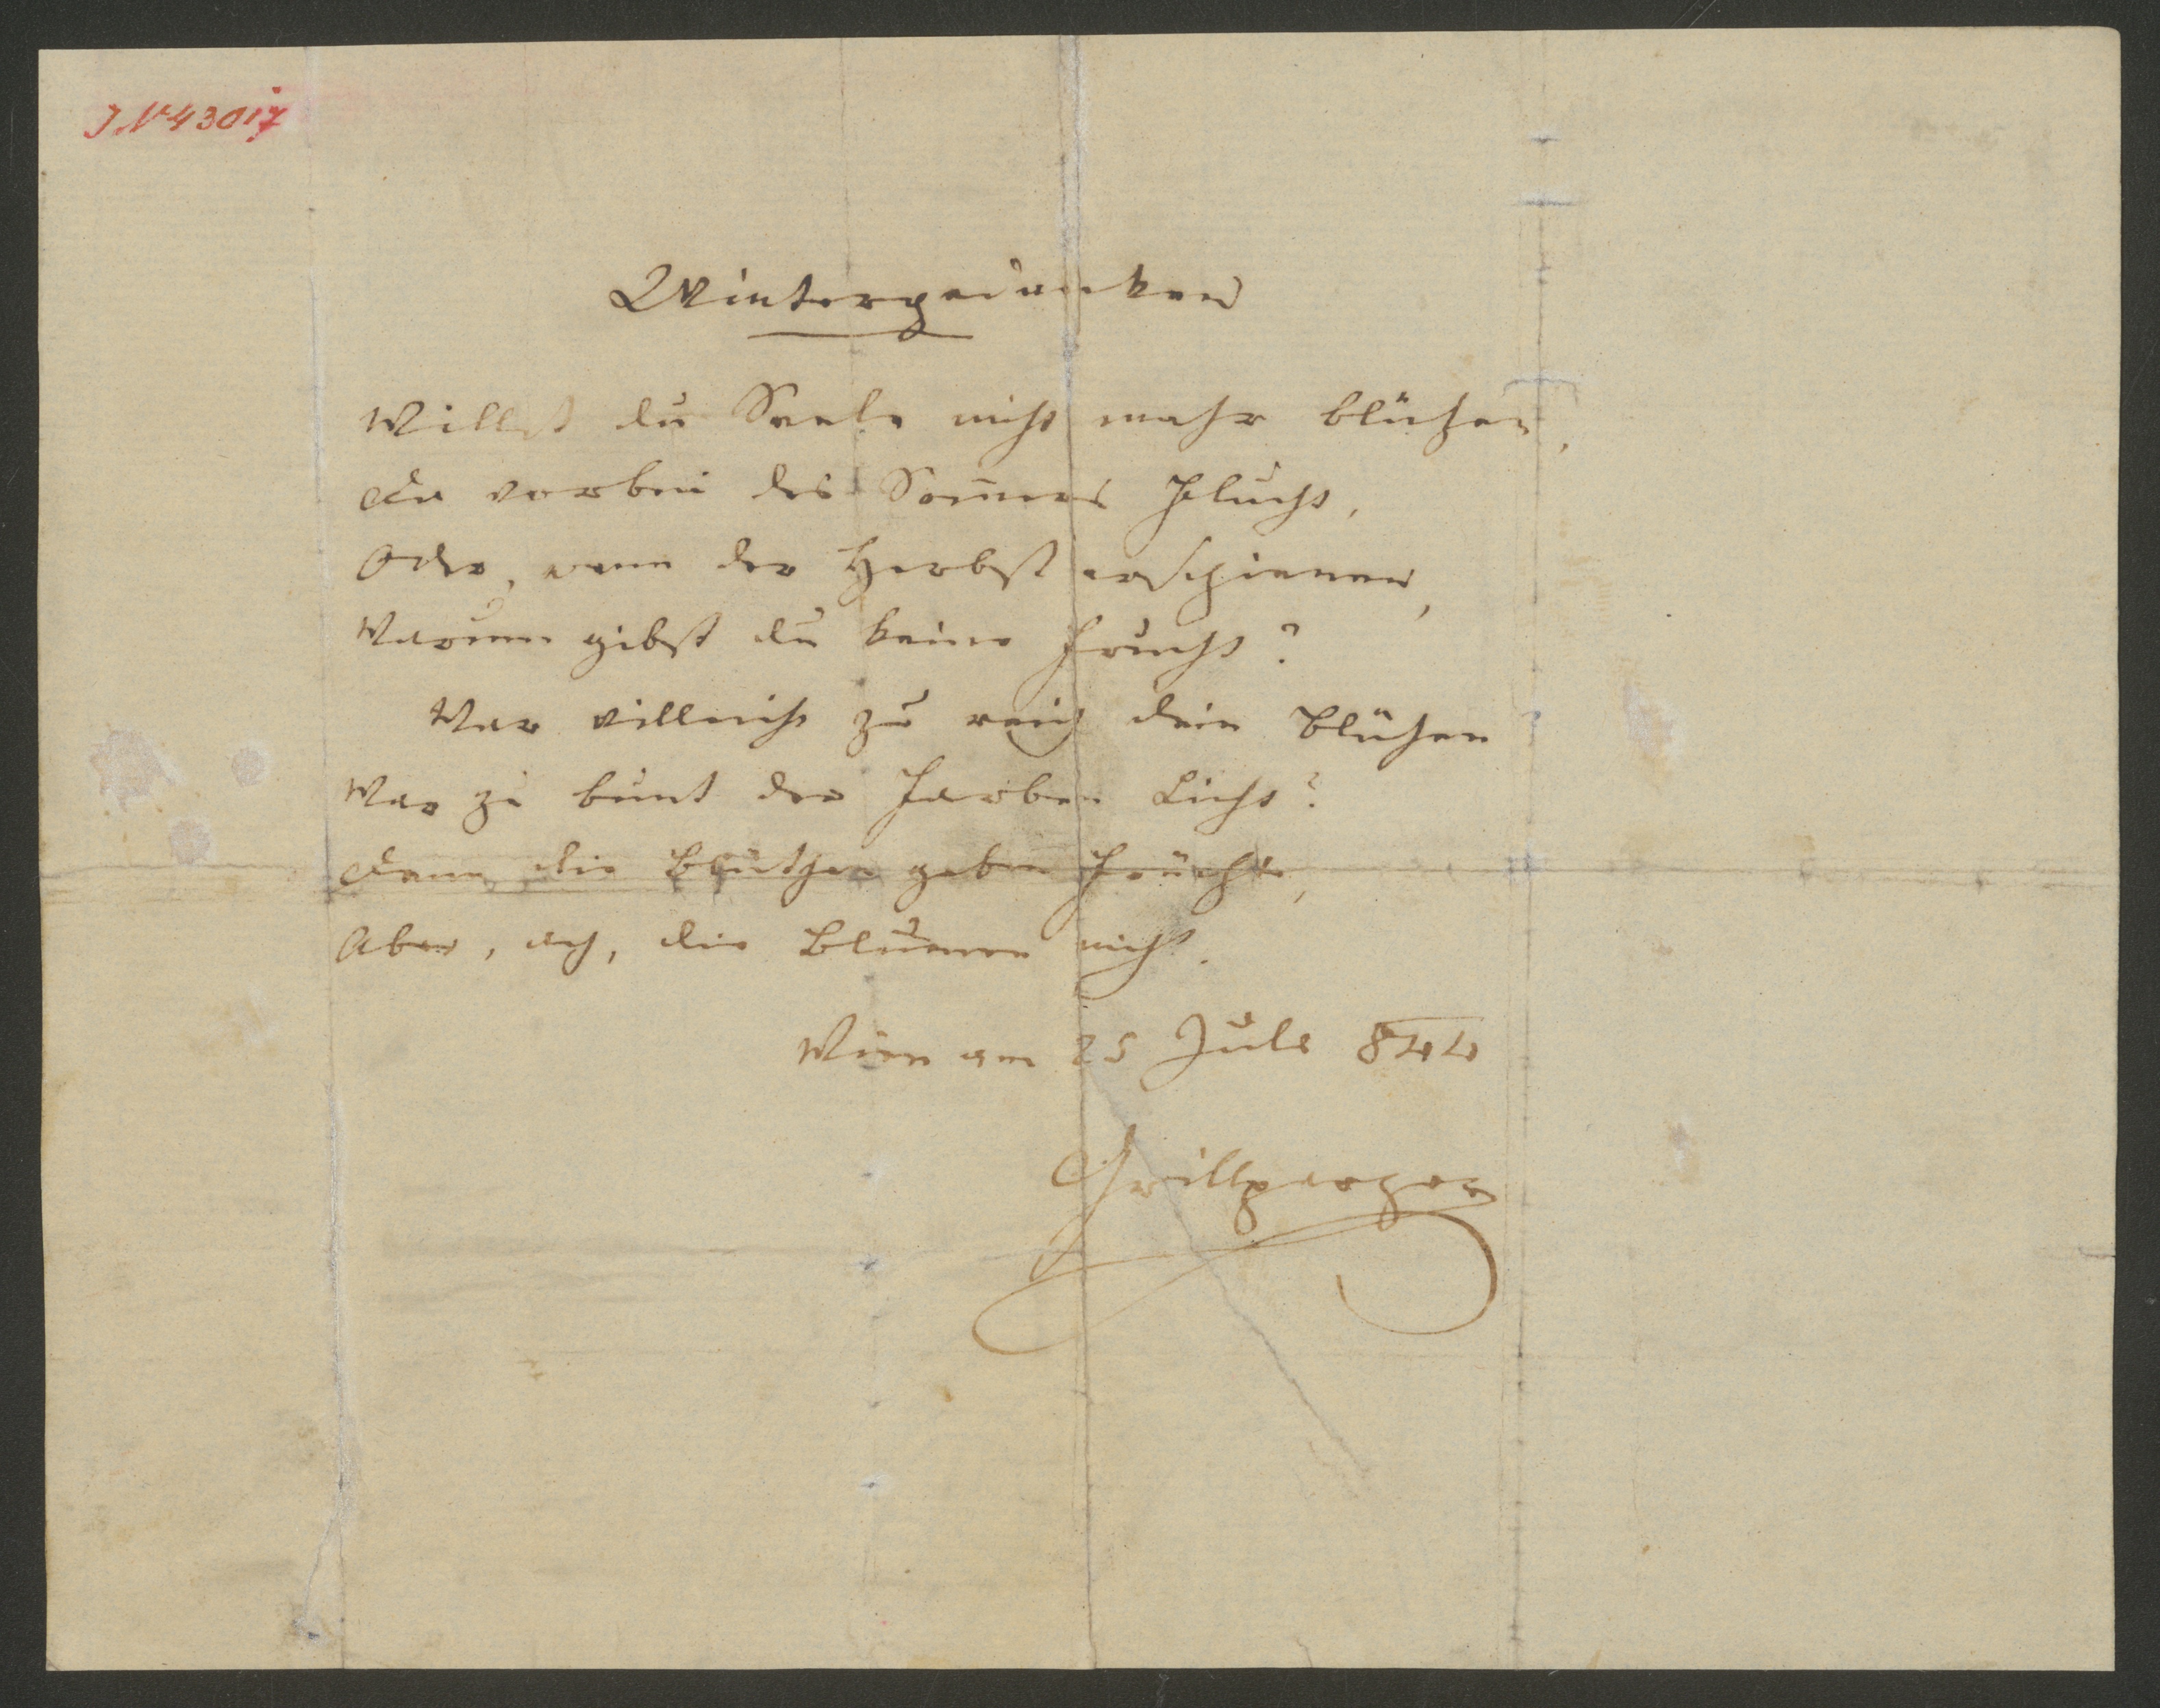 I. N 43017
Wintergedanken
Willst du Seele nicht mehr blühen,
Da vorbei des Som̅ers Flucht,
Oder, wenn der Herbst erschienen,
Warum gibst du keine Frucht?
War villeicht zu reich dein Blühen
War zu bunt der Farben Licht?
Denn die Blüthen geben Früchte,
Aber, ach, die Blumen nicht.
Wien am 25 Juli 844
Grillparzer